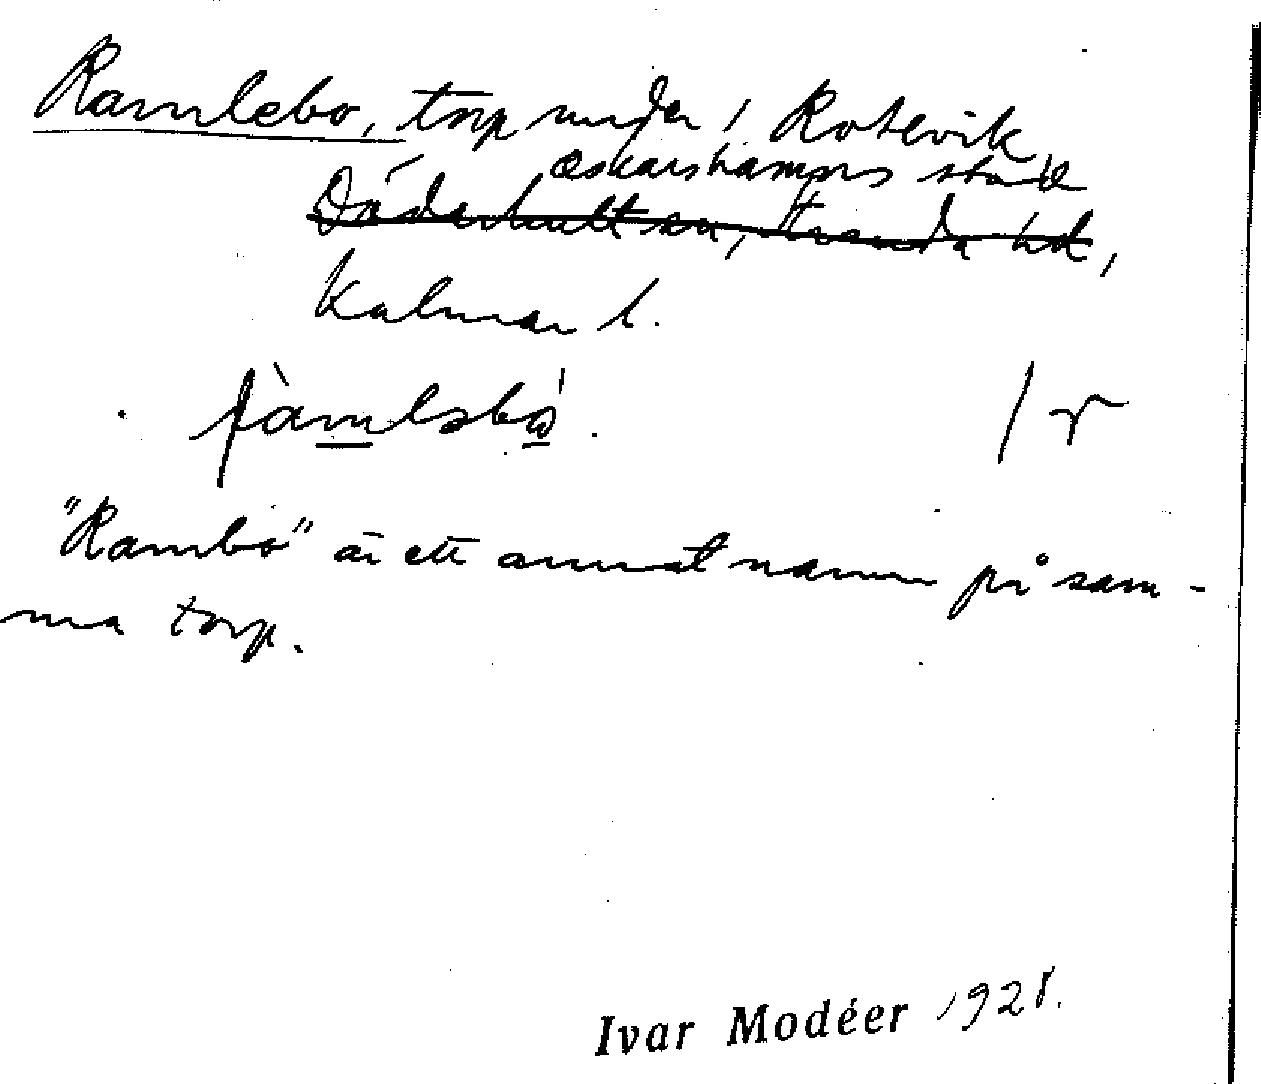 Ramlebo, torp under / Rotevik,
Oskarshamns stad
Döderhult sn, Stranda hd,
Kalmar l.
"Rambo" är ett annat namn på sam-
ma torp.
Ivar Modéer 1928.